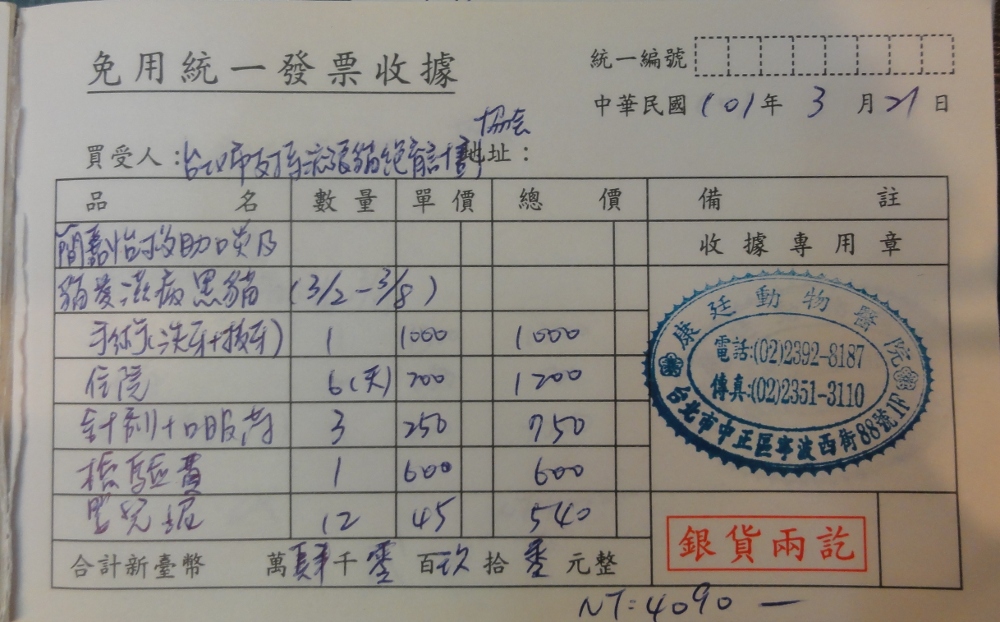 免用統一發票收據
統一編號
中華民國 101年 3月21日
協會
買受人：台北市支持流浪貓絕育計劃 地址：
品名 數量 單價 總價 備註
簡嘉怡救助口炎及 收據專用章
貓愛滋病黑貓 (3/2-3/8)
手術(洗牙+拔牙) 1 1000 1000
住院 6(天) 200 1200
針劑+口服藥 3 250 750
檢驗費 1 600 600
12 45 540
康廷動物醫院
電話:(02)2392-8187
傳真:(02)2351-3110
台北市中正區寧波西街88號1F
銀貨兩訖
合計新臺幣 萬肆千零百玖拾零元整
NT:4090 —